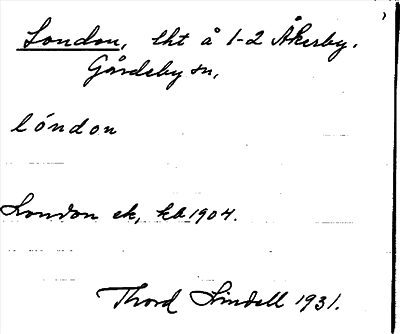 London, lht å 1-2 Åkerby.
Gårdeby sn,
lóndon
London ek, kb 1904.
Thord Lindell 1931.